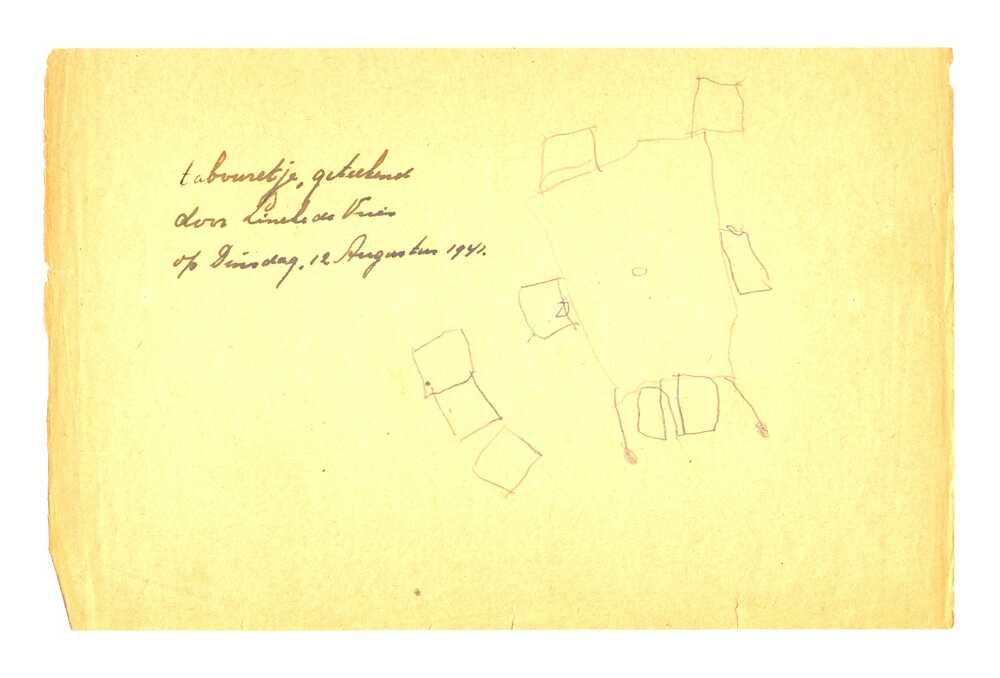 tabouretje, geteekend
door Lineke de Vries
op Dinsdag, 12 Augustus 1941.